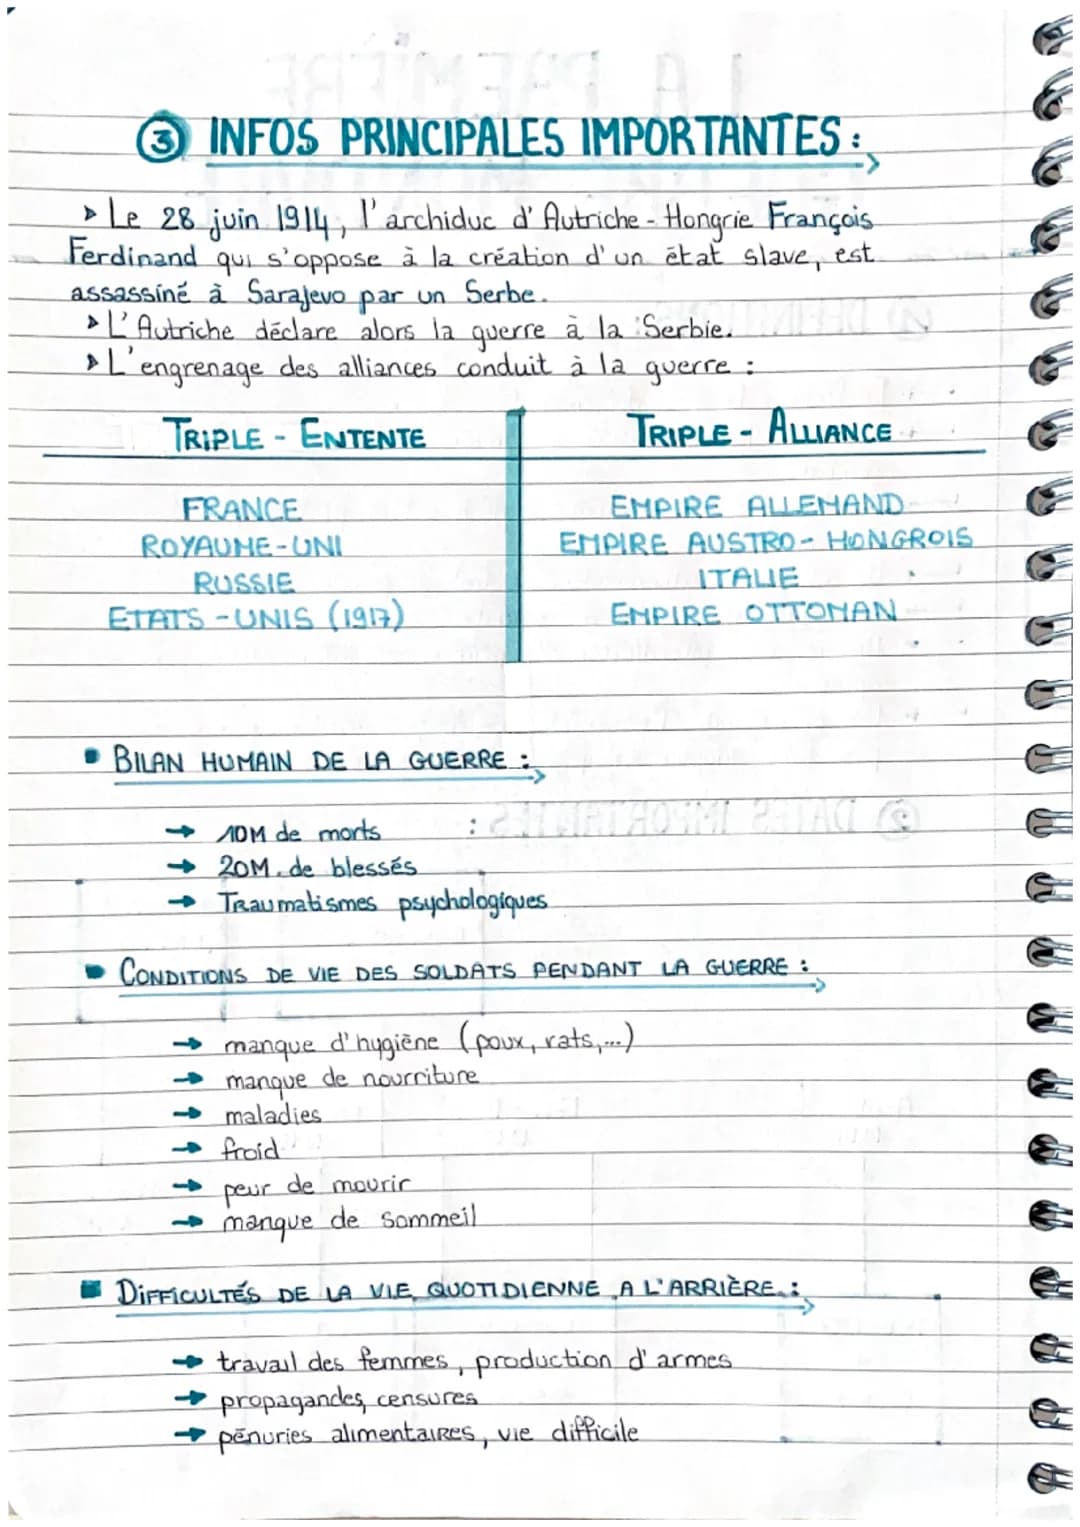 ③ INFOS PRINCIPALES IMPORTANTES :
▸ Le 28 juin 1914, l'archiduc d'Autriche-Hongrie François
Ferdinand qui s'oppose à la création d'un état slave, est
assassiné à Sarajevo par un Serbe.
▸ L'Autriche déclare alors la guerre à la Serbie.
▸ L'engrenage des alliances conduit à la guerre :
TRIPLE - ENTENTE
FRANCE
ROYAUME-UNI
RUSSIE
ETATS-UNIS (1917)
TRIPLE - ALLIANCE
EMPIRE ALLEMAND
EMPIRE AUSTRO-HONGROIS
ITALIE
EMPIRE OTTOMAN
BILAN HUMAIN DE LA GUERRE :
→ 10M de morts
→ 20M de blessés
→ Traumatismes psychologiques
CONDITIONS DE VIE DES SOLDATS PENDANT LA GUERRE :
→ manque d'hygiène (poux, rats,...)
→ manque de nourriture
→ maladies
→ froid
→ peur de mourir
→ manque de sommeil
DIFFICULTÉS DE LA VIE QUOTIDIENNE A L'ARRIÈRE :
→ travail des femmes, production d'armes
→ propagandes, censures
→ pénuries alimentaires, vie difficile